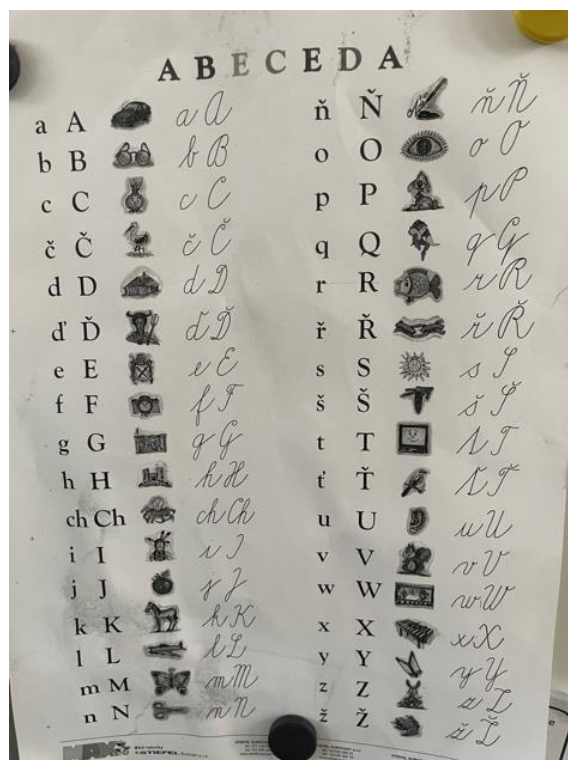 ABECEDA
a A a A
b B b B
c C c C
č Č č Č
d D d D
ď Ď ď Ď
e E e E
f F f F
g G g G
h H h H
ch Ch ch Ch
i I i I
j J j J
k K k K
l L l L
m M m M
n N n N
ň Ň ň Ň
o O o O
p P p P
q Q q Q
r R r R
ř Ř ř Ř
s S s S
š Š š Š
t T t T
ť Ť ť Ť
u U u U
v V v V
w W w W
x X x X
y Y y Y
z Z z Z
ž Ž ž Ž
STIEFEL